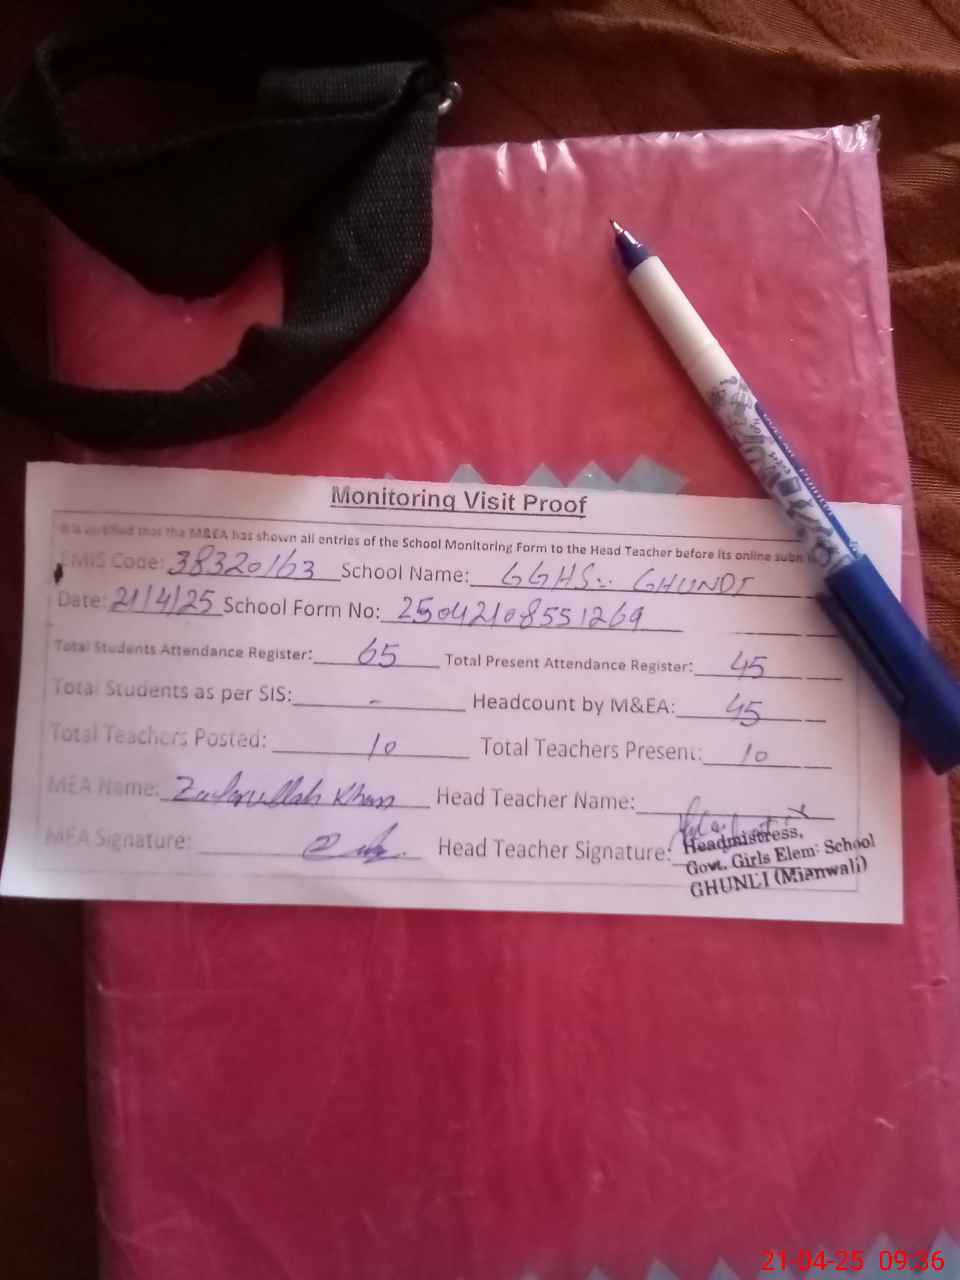 Monitoring Visit Proof
It is certified that the M&EA has shown all entries of the School Monitoring Form to the Head Teacher before its online subm
EMIS Code: 38320163 School Name: GGHS.. GHUNDI
Date: 21/4/25 School Form No: 25042108551269
Total Students Attendance Register: 65 Total Present Attendance Register: 45
Total Students as per SIS: - Headcount by M&EA: 45
Total Teachers Posted: 10 Total Teachers Present: 10
MEA Name: Zafarullah Khan Head Teacher Name:
MEA Signature: Head Teacher Signature:
Headmistress,
Govt. Girls Elem: School
GHUNDI (Mianwali)
21-04-25 09:36